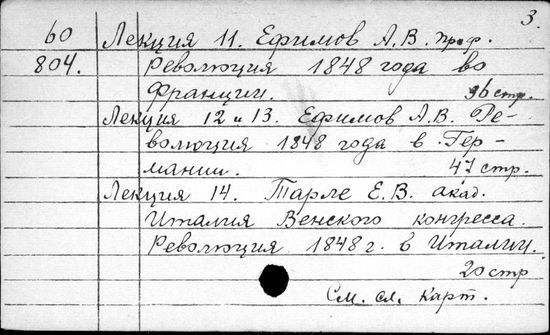 3.
60 Лекция 11. Ефимов А.В. проф.
804. Революция 1848 года во
Франции. 36 стр.
Лекция 12 и 13. Ефимов А.В. Ре-
волюция 1848 года в Гер-
мании. 47 стр.
Лекция 14. Тарле Е.В. акад.
Италия Венского конгресса.
Революция 1848 г. в Италии.
20 стр
См. сл. карт.